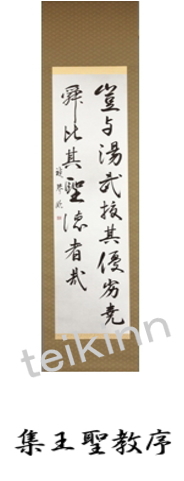 豈与湯武挍其優劣堯
舜比其聖徳者哉
teikinn
集王聖教序